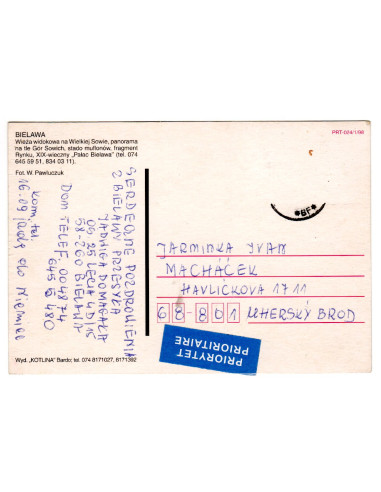 BIELAWA
Wieża widokowa na Wielkiej Sowie, panorama
na tle Gór Sowich, stado muflonów, fragment
Rynku, XIX-wieczny „Pałac Bielawa” (tel. 074
645 59 51, 834 03 11).
Fot. W. Pawluczuk
PRT-024/1/98
SERDECZNE POZDROWIENIA
Z BIELAWY PRZESYŁA
JADWIGA DOMAGAŁA
OS 25 LECIA 4D/15
58-260 BIELAWA
DOM TELEF. 004874
645 6480
Kom. tel.
16.09 jadę do Niemiec
*BF*
JARMINKA IVAN
MACHÁČEK
HAVLÍČKOVA 1711
68-801 UHERSKÝ BROD
PRIORYTET
PRIORITAIRE
Wyd. „KOTLINA” Bardo; tel. 074 8171027, 8171392